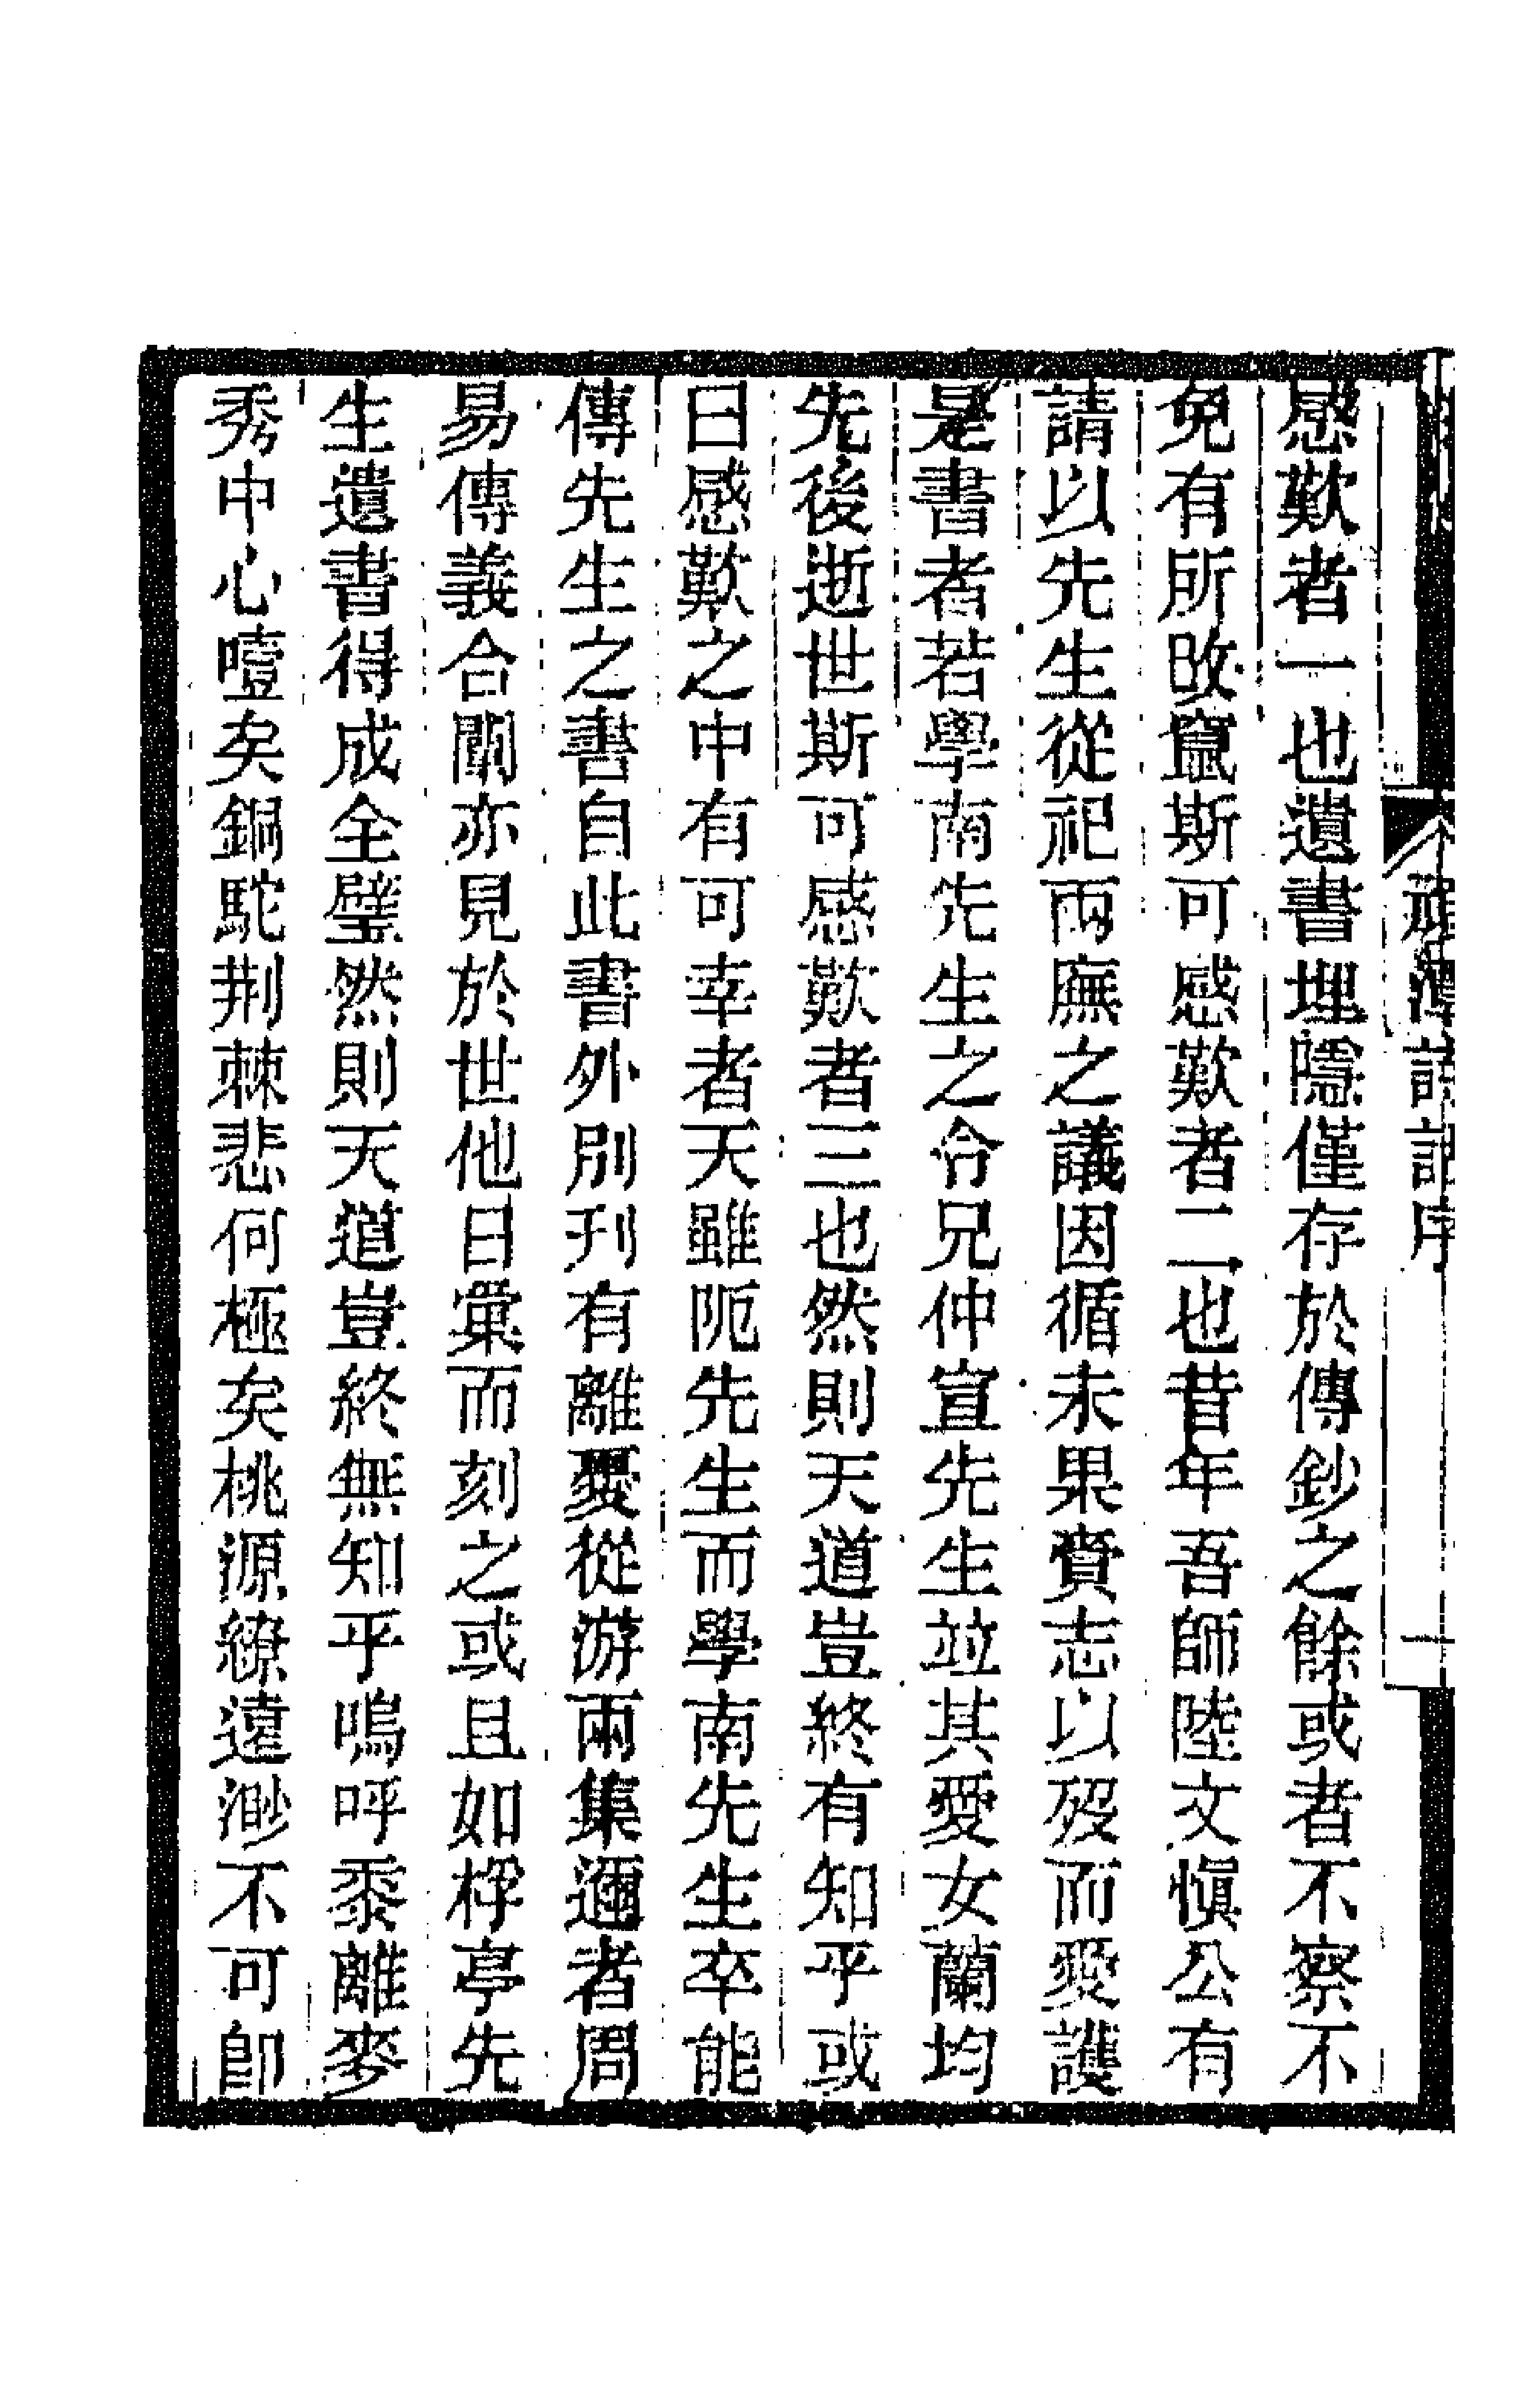 潭詩記序
一
感歎者一也遺書埋隱僅存於傳鈔之餘或者不察不
免有所改竄斯可感歎者二也昔年吾師陸文愼公有
請以先生從祀兩廡之議因循未果賫志以歿而愛護
是書者若學南先生之令兄仲宣先生竝其愛女蘭均
先後逝世斯可感歎者三也然則天道豈終有知乎或
曰感歎之中有可幸者天雖阨先生而學南先生卒能
傳先生之書自此書外別刋有離憂從游兩集邇者周
易傳義合闡亦見於世他日彙而刻之或且如桴亭先
生遺書得成全璧然則天道豈終無知乎嗚呼黍離麥
秀中心噎矣銅駝荆棘悲何極矣桃源繚遠渺不可卽